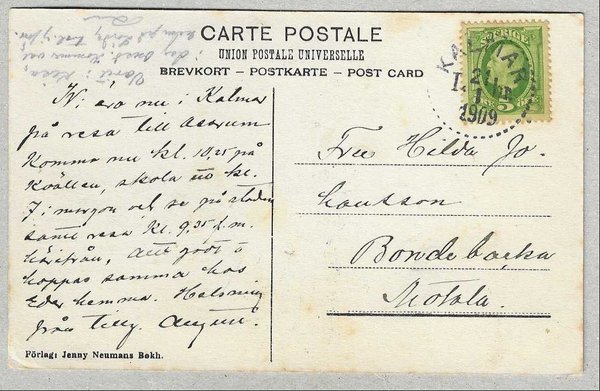 CARTE POSTALE
UNION POSTALE UNIVERSELLE
BREVKORT - POSTKARTE - POST CARD
SVERIGE
KALMAR
1909
5
Vi äro nu i Kalmar
på resa till
Komma nu kl. 10,25 på
Kvällen, skola ut kl.
7 i morgon och se på staden
samt resa kl. 9,35 f.m.
härifrån, allt godt
hoppas samma hos
Eder hemma. Helsning
från tillg. August.
Fru Hilda Jo-
hansson
Bondebacka
Motala.
Förlag: Jenny Neumans Bokh.